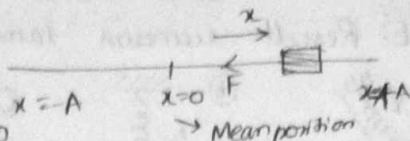 x
F
x = -A
x=0
x=+A
→ Mean position